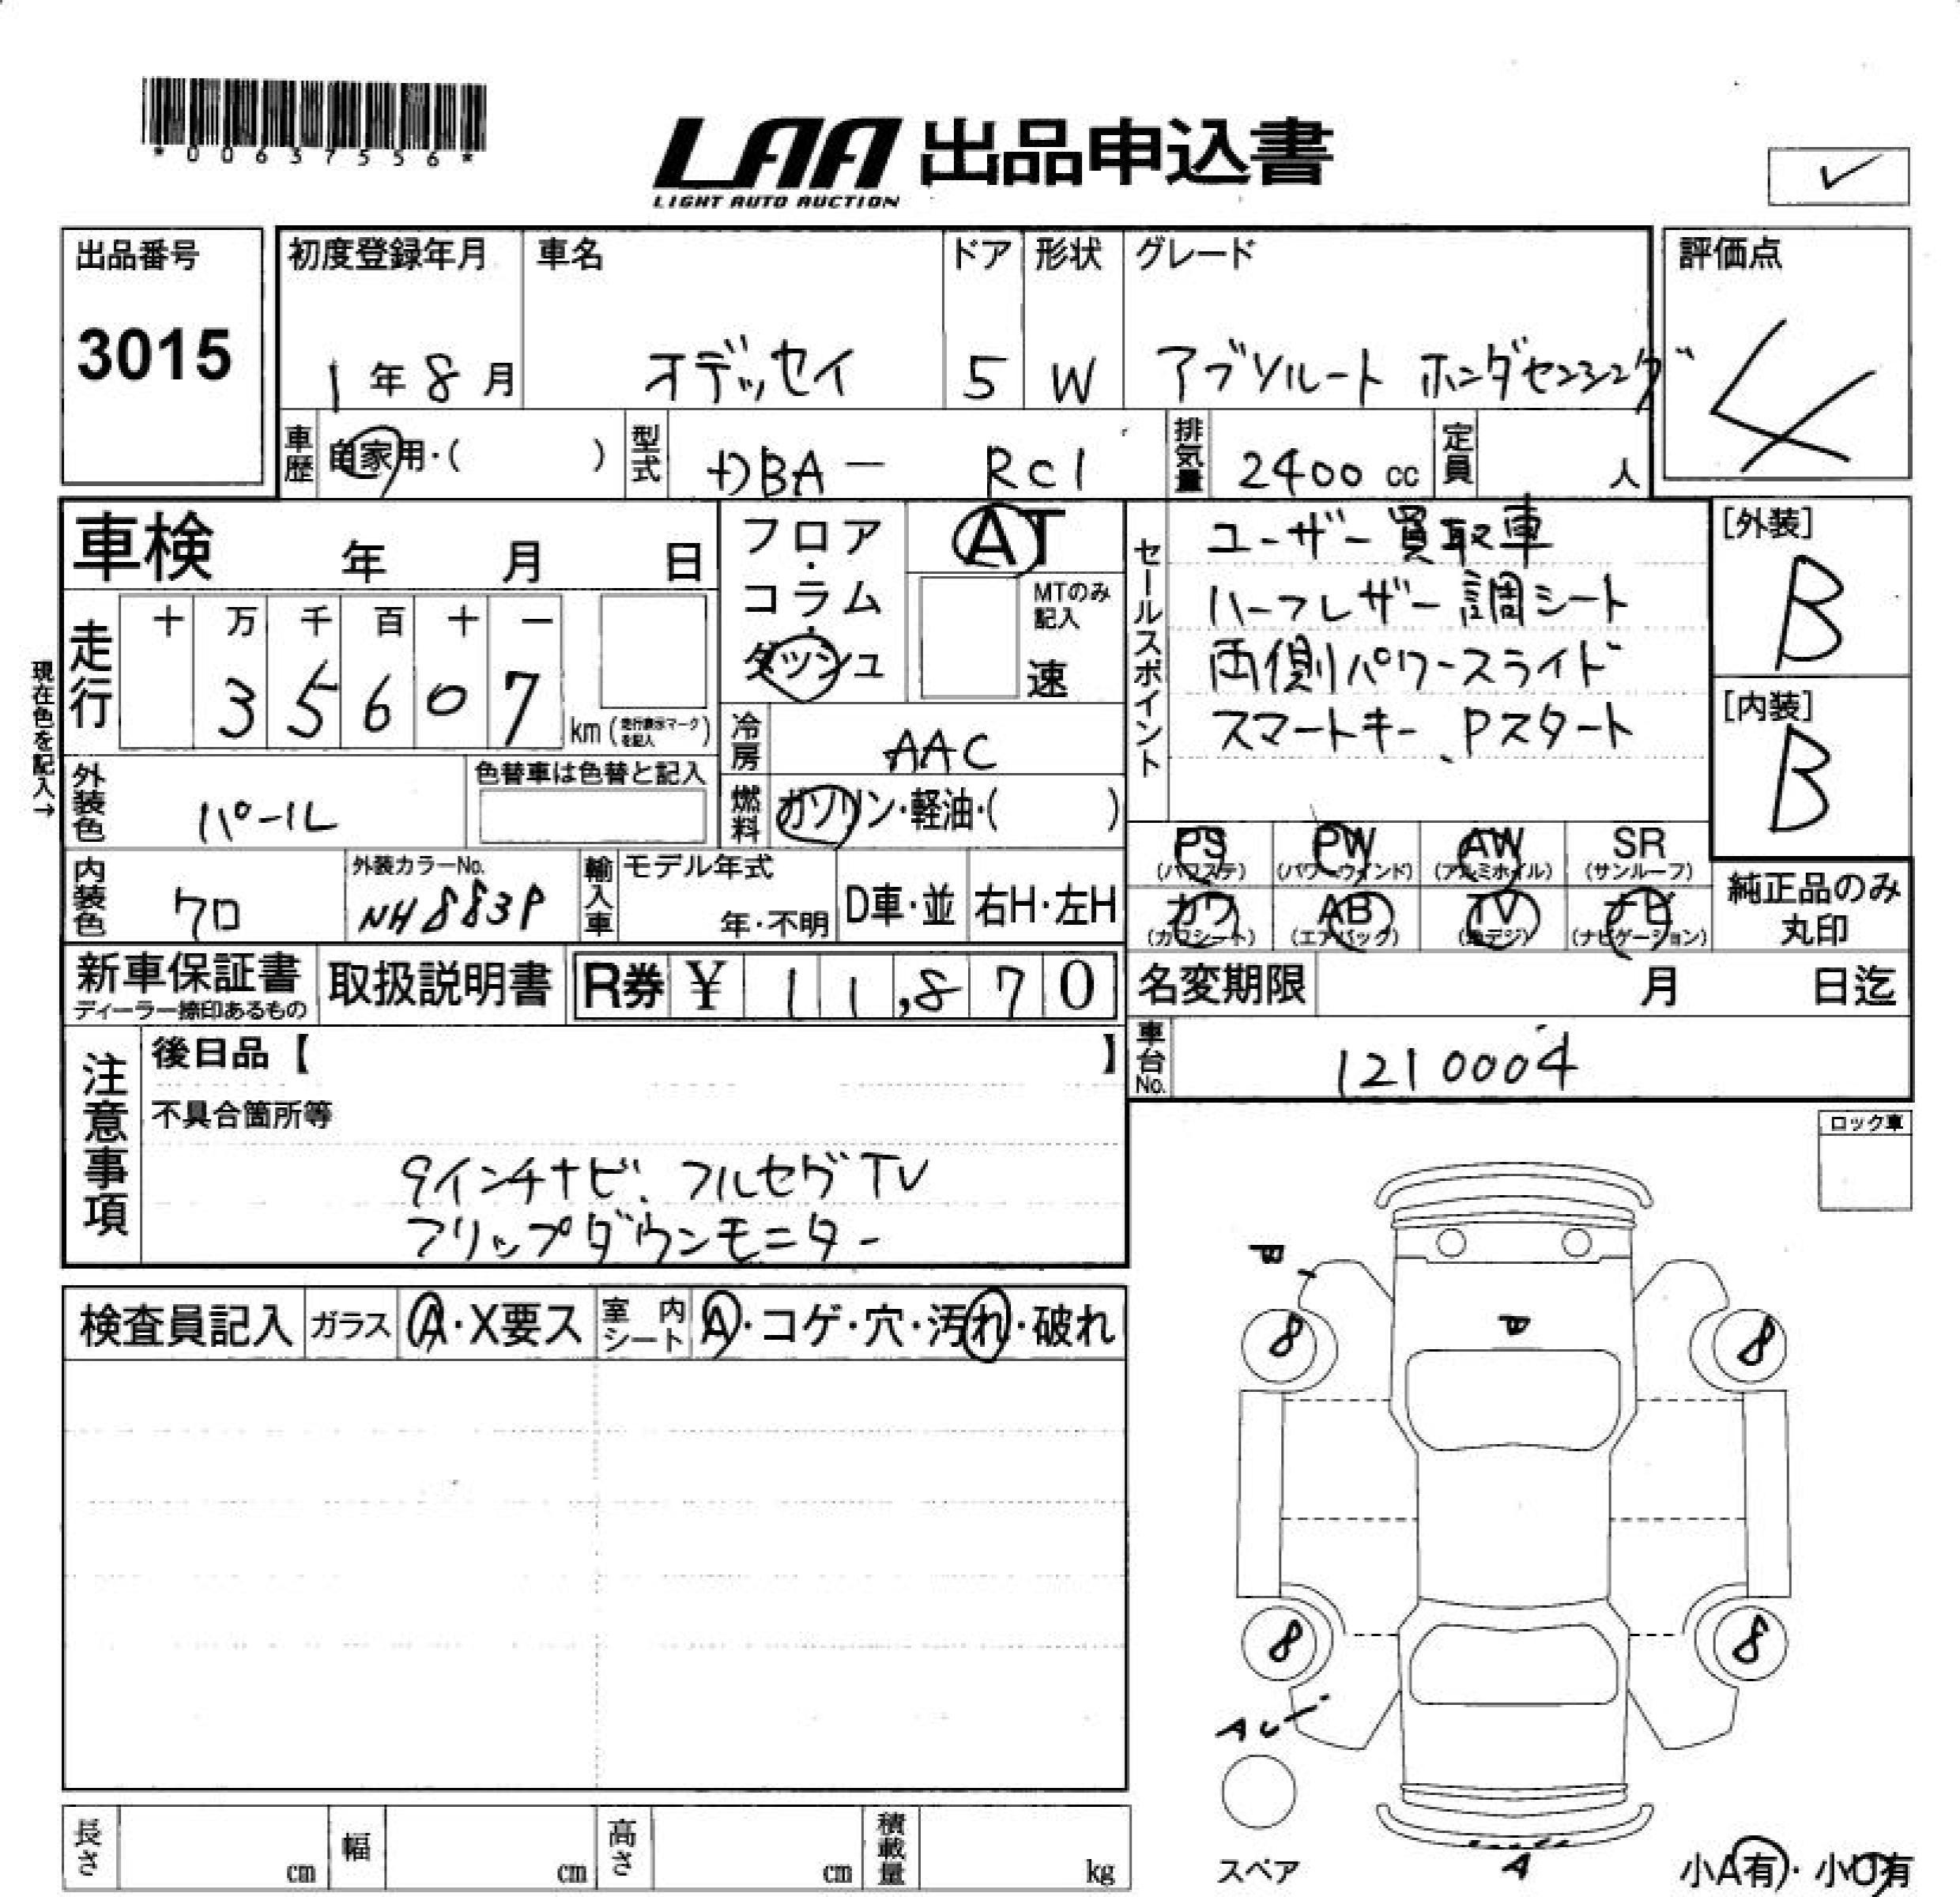 *00637556*
LAA 出品申込書
LIGHT AUTO AUCTION
✓
出品番号
3015
初度登録年月 車名 ドア 形状 グレード
1年8月 オデッセイ 5 W アブソルート ホンダセンシング
評価点
4
車歴 自家用・( ) 型式 DBA- RC1 排気量 2400cc 定員 人
車検 年 月 日
フロア・コラム・ダッシュ
AT
MTのみ記入
速
セールスポイント
ユーザー買取車
ハーフレザー調シート
両側パワースライド
スマートキー、Pスタート
[外装]
B
[内装]
B
現在色を記入→
走行
十 万 千 百 十 一
3 5 6 0 7
km (走行表示マークを記入)
冷房 AAC
外装色 パール
色替車は色替と記入
燃料 ガソリン・軽油・( )
PS (パワステ) PW (パワーウインド) AW (アルミホイル) SR (サンルーフ)
カワ (カワシート) AB (エアバック) TV (地デジ) ナビ (ナビゲーション)
純正品のみ丸印
内装色 クロ
外装カラーNo. NH883P
輸入車 モデル年式 年・不明 D車・並 右H・左H
新車保証書 ディーラー捺印あるもの
取扱説明書
R券 ¥ 11,870
名変期限 月 日迄
車台No. 1210004
注意事項
後日品【 】
不具合箇所等
9インチナビ、フルセグTV
フリップダウンモニター
ロック車
検査員記入 ガラス A・X要ス 室内シート A・コゲ・穴・汚れ・破れ
8 8
8 8
AU
A
スペア
小A有・小U有
長さ cm 幅 cm 高さ cm 積載量 kg